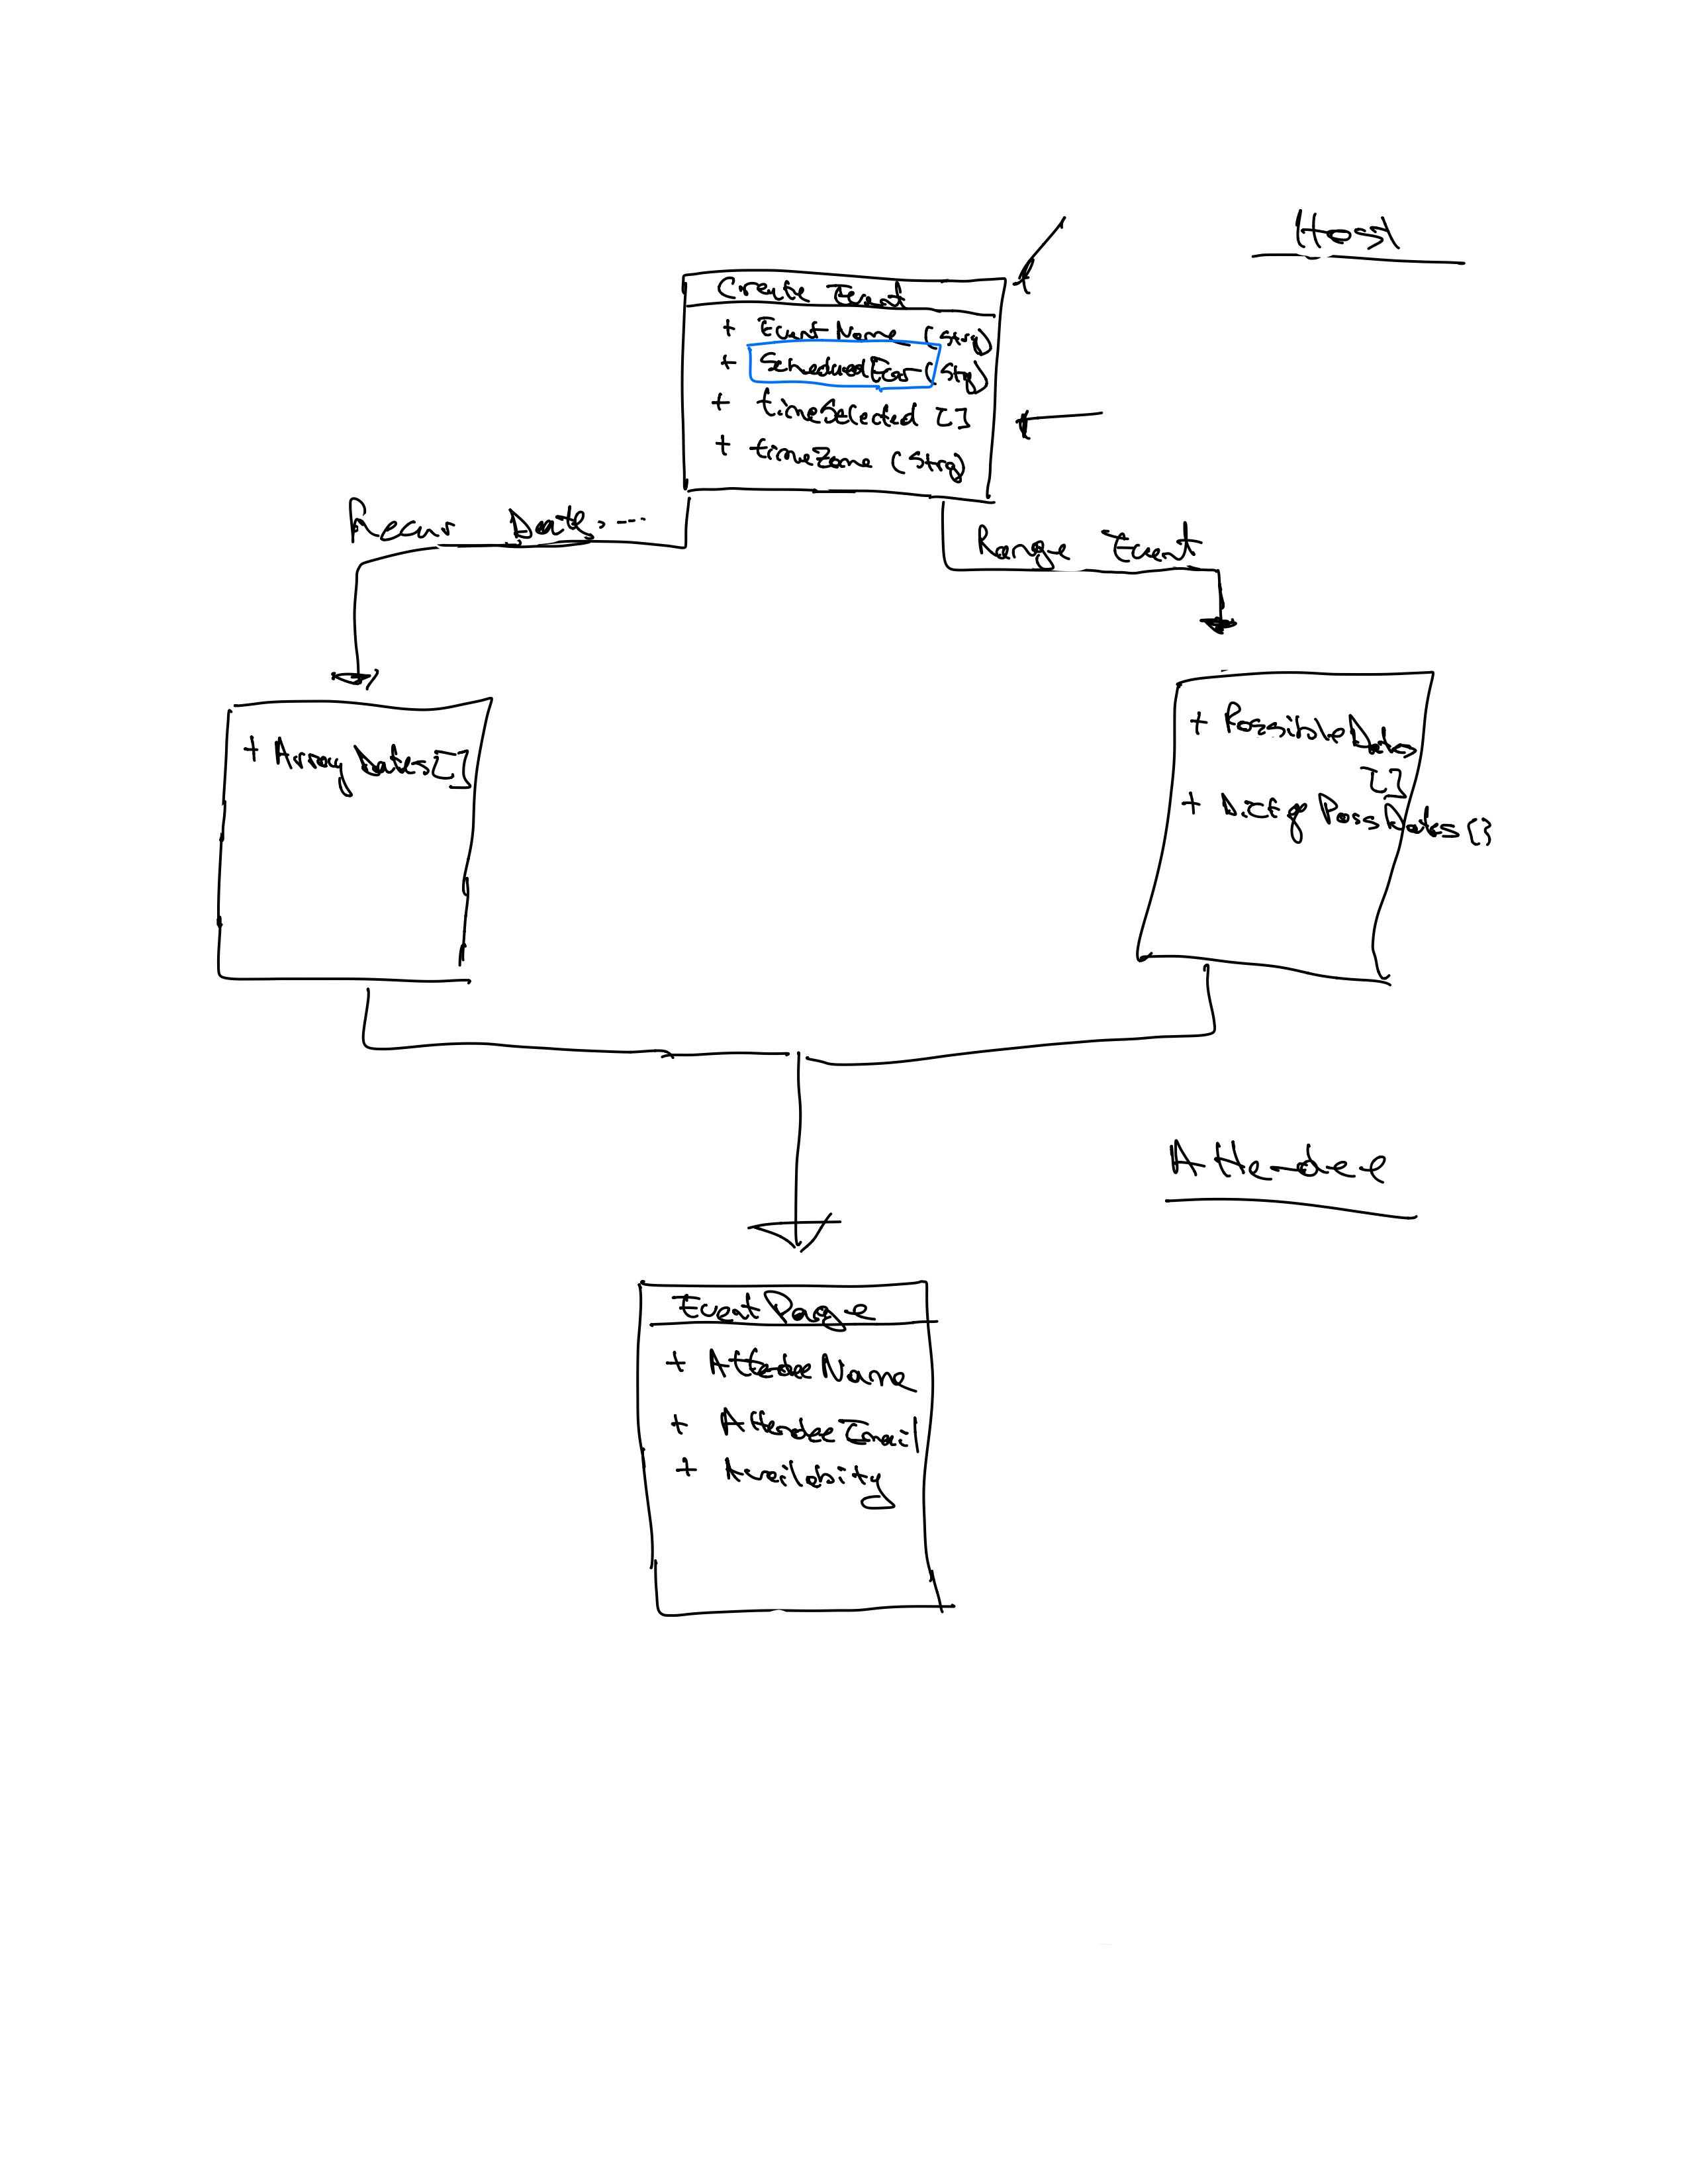 Host
Create Event
+ EventName (strg)
+ (Strg)
+ timeSelected []
+ timeZone (Strg)
Recur Date, ...
Range Event
+ ArrayDates[]
+ PossibleDates
[]
+ Dict of PossDates{}
Attendee
EventPage
+ AttedeeName
+ AttendeeEmail
+ Availabity